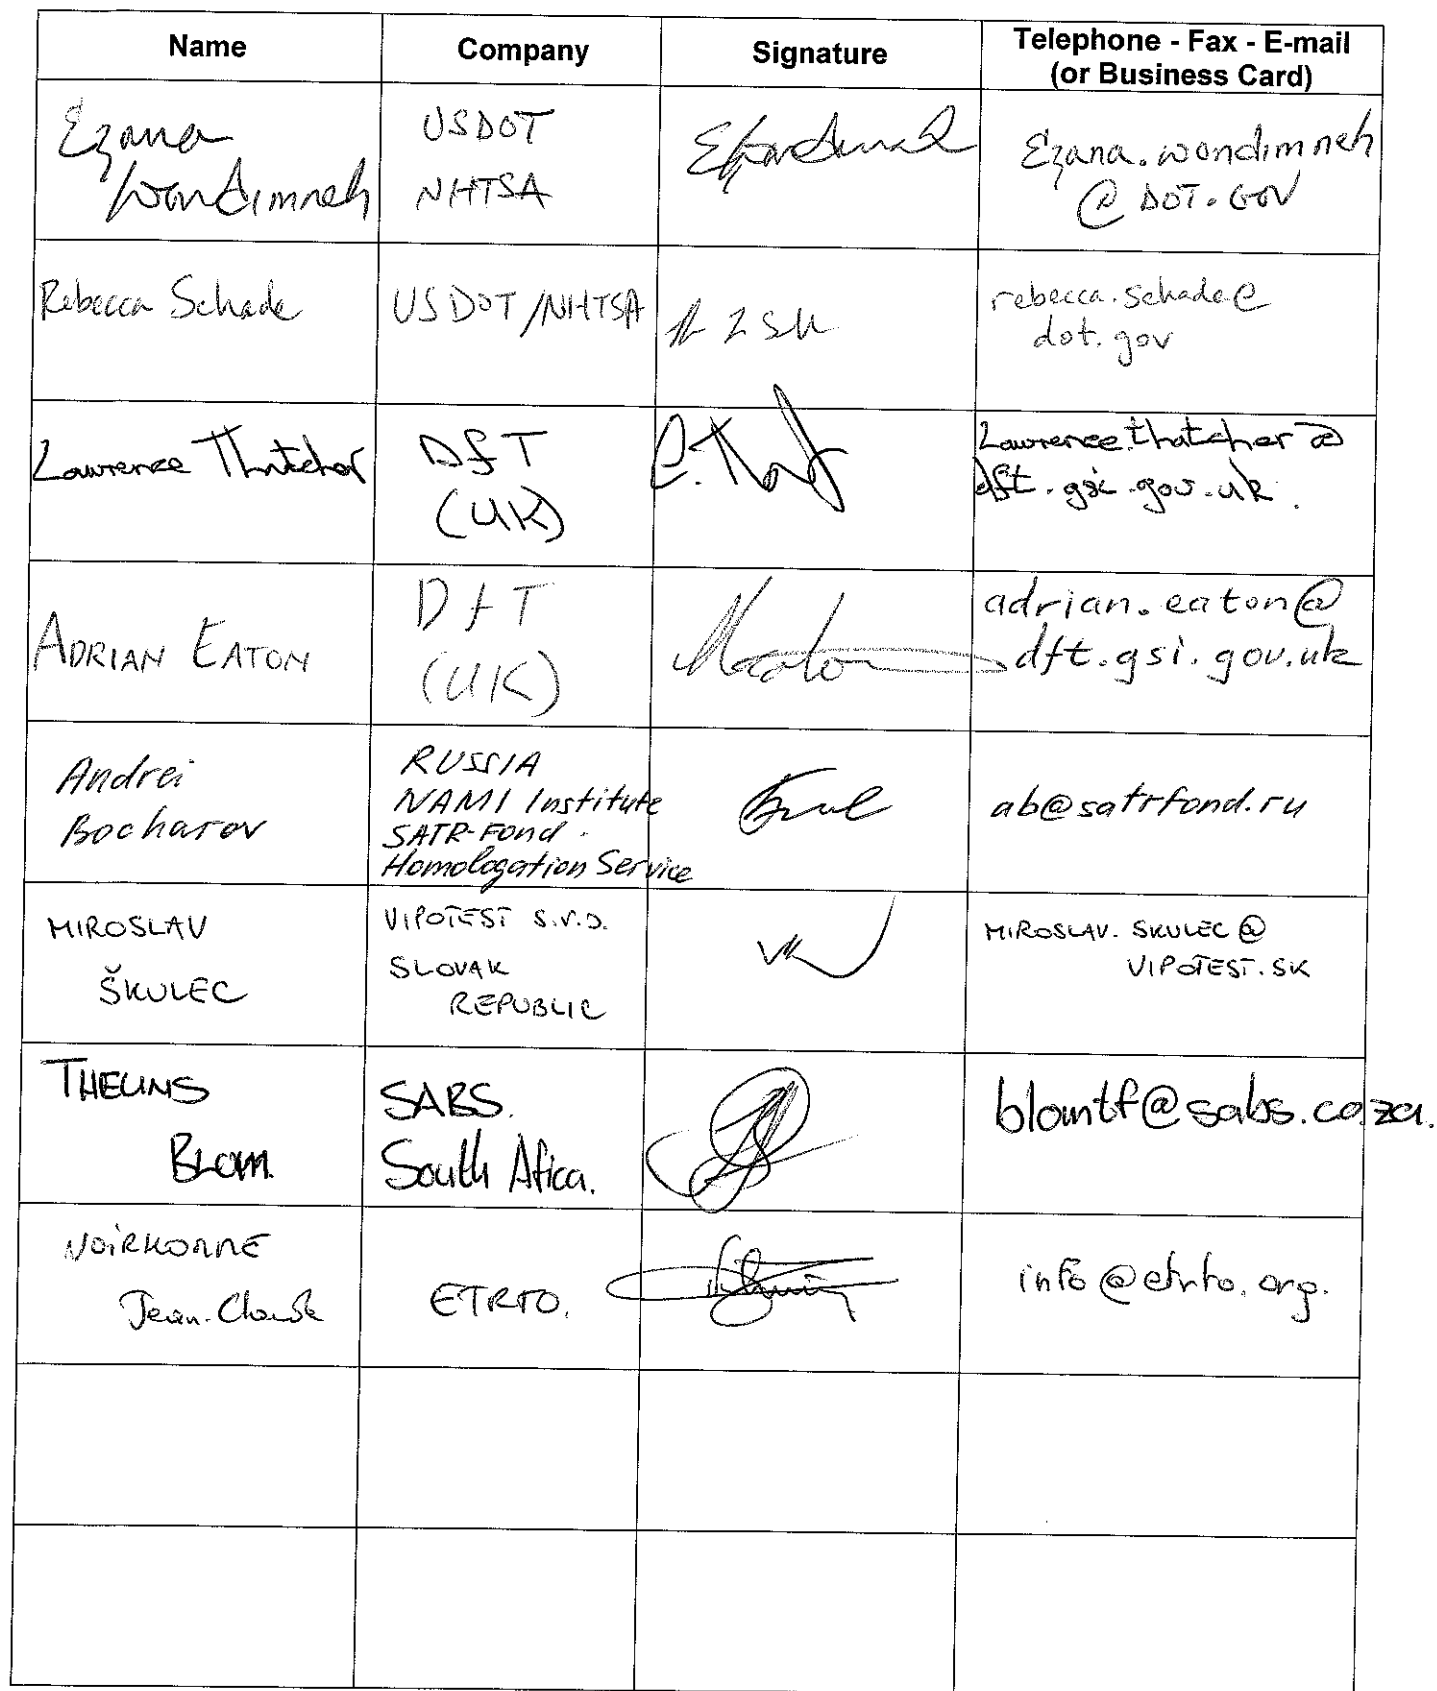 Name Company Signature Telephone - Fax - E-mail
(or Business Card)
Ezana
Wondimneh
USDOT
NHTSA
Ezana.wondimneh
@ DOT.GOV
Rebecca Schade
USDOT/NHTSA
rebecca.schade@
dot.gov
Lawrence Thatcher
DfT
(UK)
Lawrence.thatcher@
dft.gsi.gov.uk.
ADRIAN EATON
DfT
(UK)
adrian.eaton@
dft.gsi.gov.uk
Andrei
Bocharov
RUSSIA
NAMI Institute
SATR-Fond -
Homologation Service
ab@satrfond.ru
MIROSLAV
ŠKULEC
VIPOTEST s.r.o.
SLOVAK
REPUBLIC
MIROSLAV.SKULEC@
VIPOTEST.SK
THEUNS
BLOM.
SABS.
South Africa.
blomtf@sabs.co.za.
NOIRHOMME
Jean-Claude
ETRTO.
info@etrto.org.